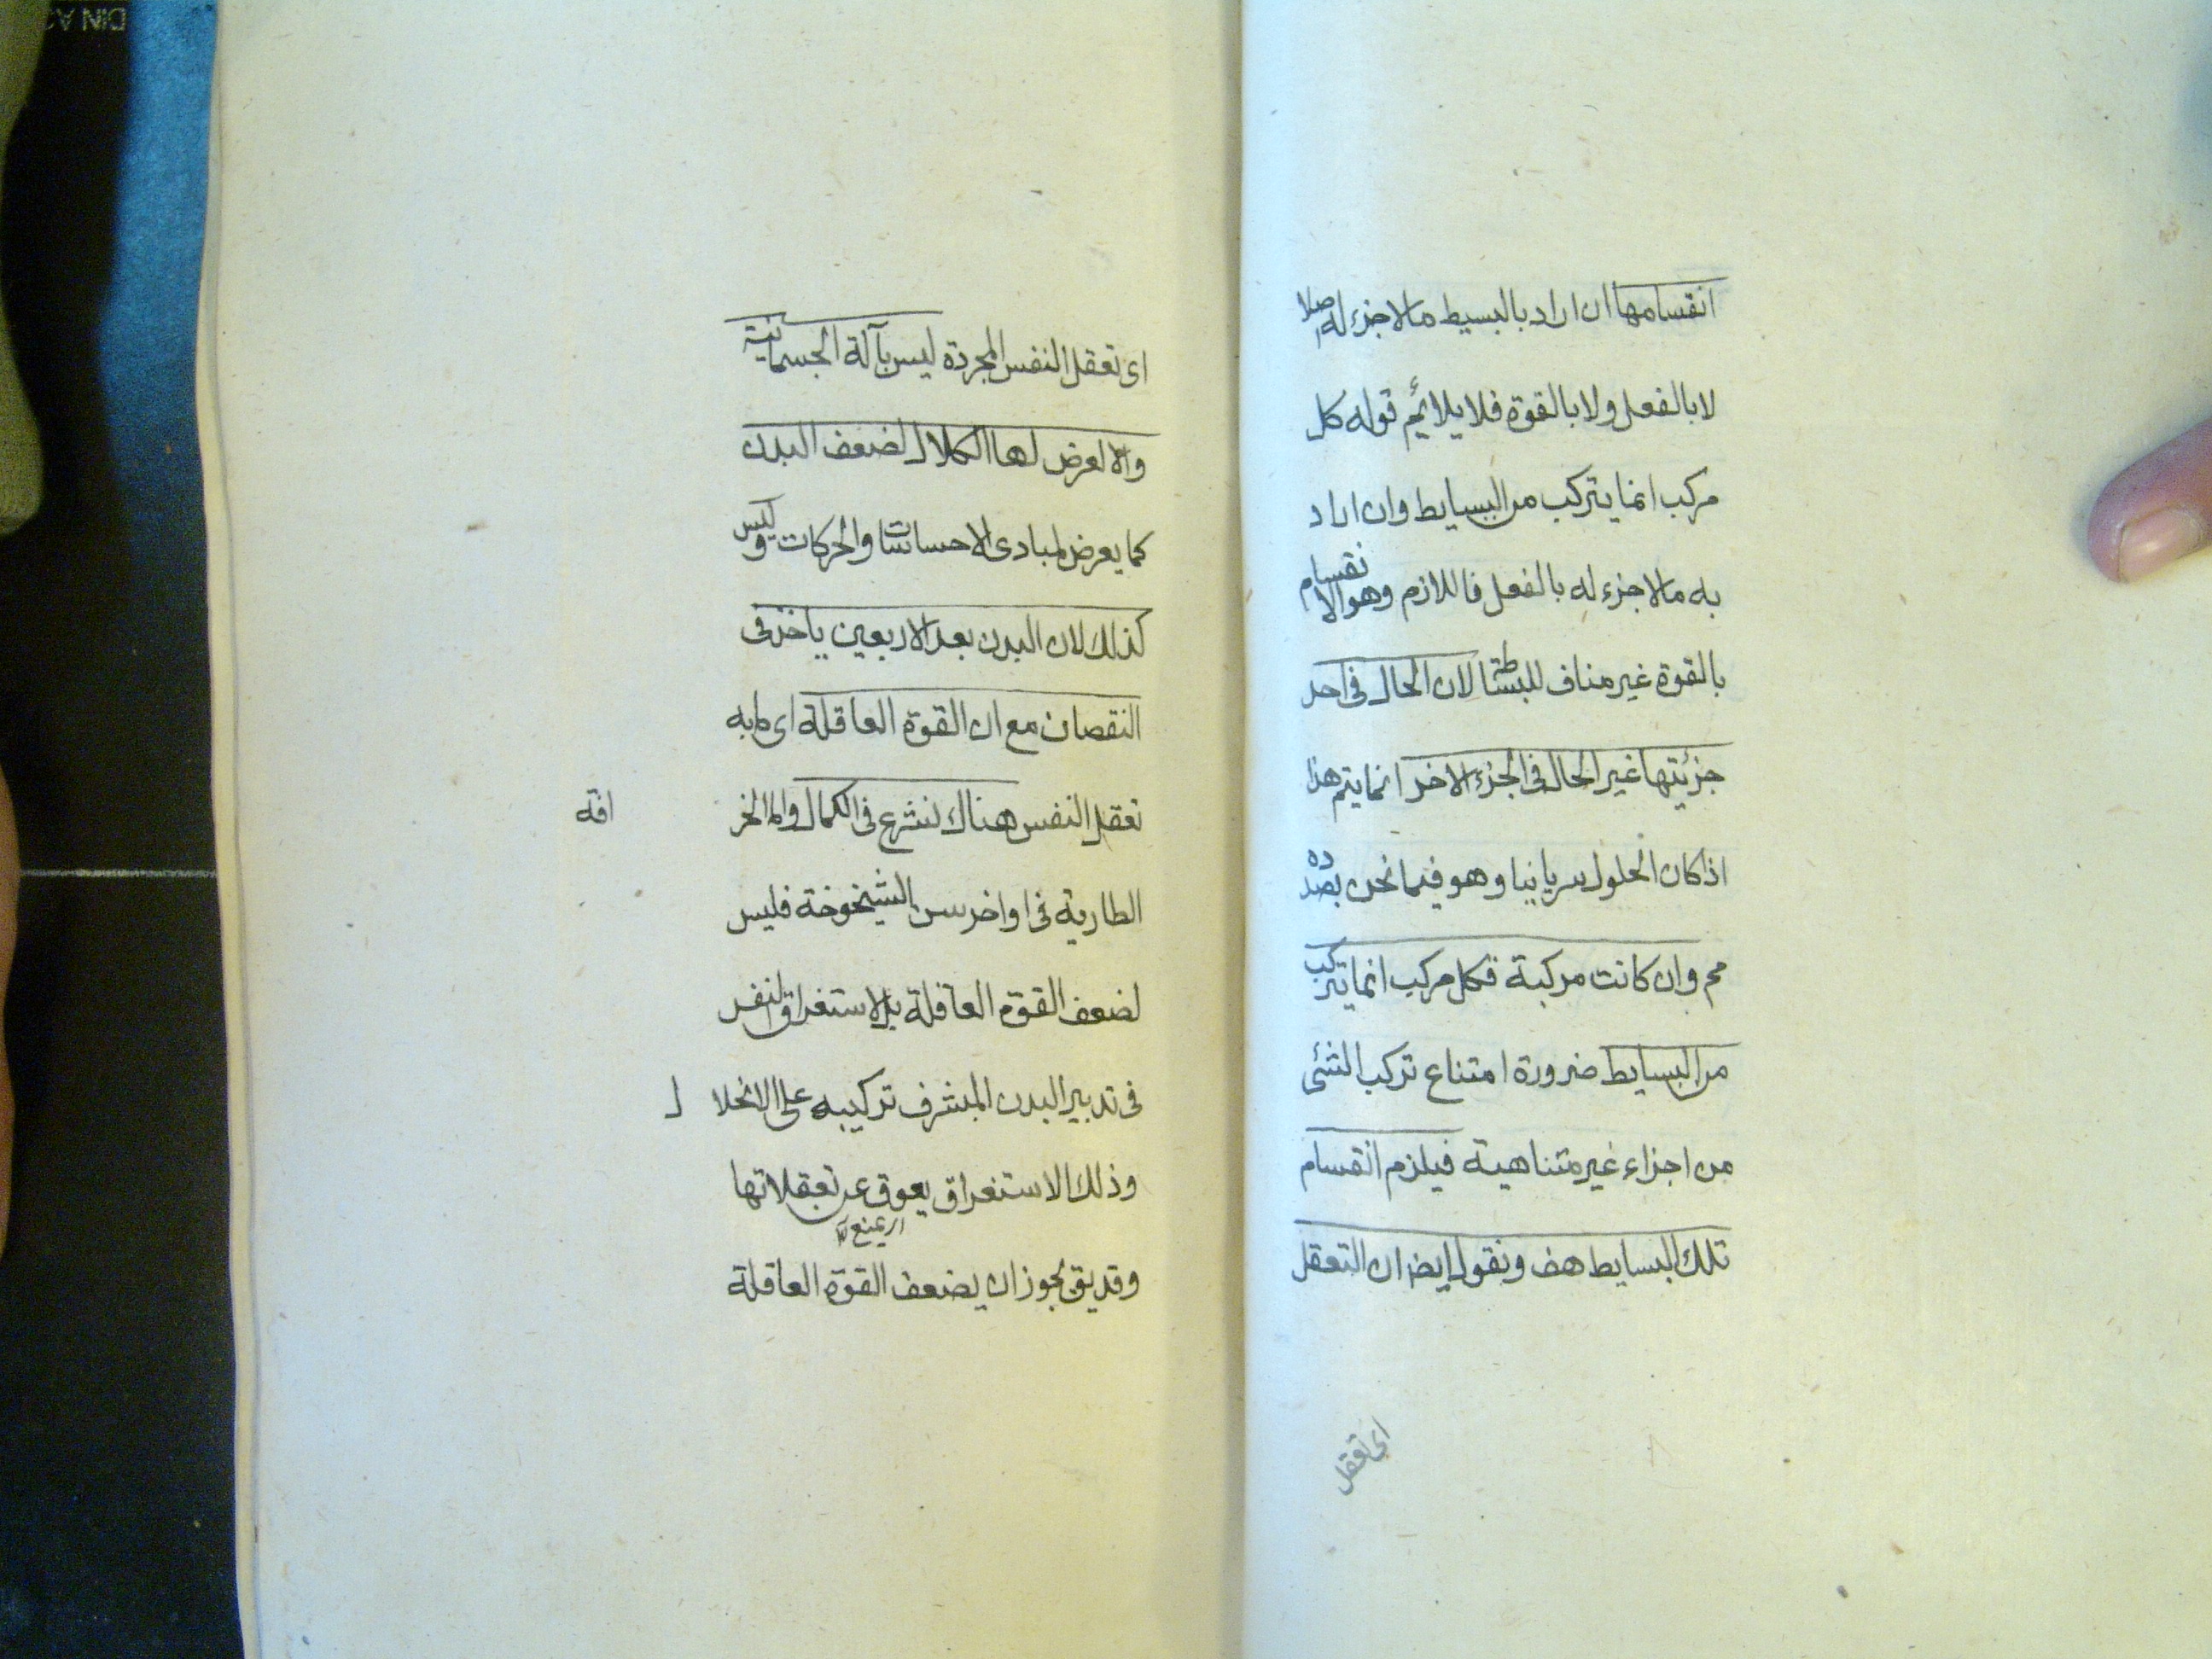 انقسامها ان اراد بالبسيط مالا جزء له اصلا
لا بالفعل ولا بالقوة فلا يلائم قوله كل
مركب انما يتركب من البسايط وان اراد
به مالا جزء له بالفعل فاللازم وهو الانقسام
بالقوة غير مناف للبساطة لان الحال فى احد
جزئيتها غير الحال فى الجزء الاخر انما يتم هذا
اذا كان الحلول سريانيا وهو فيما نحن بصدده
مم وان كانت مركبة فكل مركب انما يتركب
من البسايط ضرورة امتناع تركب الشئ
من اجزاء غير متناهية فيلزم انقسام
تلك البسايط هف ونقول ايضا ان التعقل
اى تعقل
اى تعقل النفس المجردة ليس بآلة الجسمانية
والا لعرض لها الكلال لضعف البدن
كما يعرض لمبادى الاحساسات والحركات وليس
كذلك لان البدن بعد الاربعين ياخذ فى
النقصان مع ان القوة العاقلة اى ما به
تعقل النفس هناك تشرع فى الكمال واما الخرافة
الطارية فى اواخر سن الشيخوخة فليس
لضعف القوة العاقلة بل لاستغراق النفس
فى تدبير البدن المشرف تركيبه على الانحلال
وذلك الاستغراق يعوق عن تعقلاتها
اى يمنع
وقد يق يجوز ان يضعف القوة العاقلة